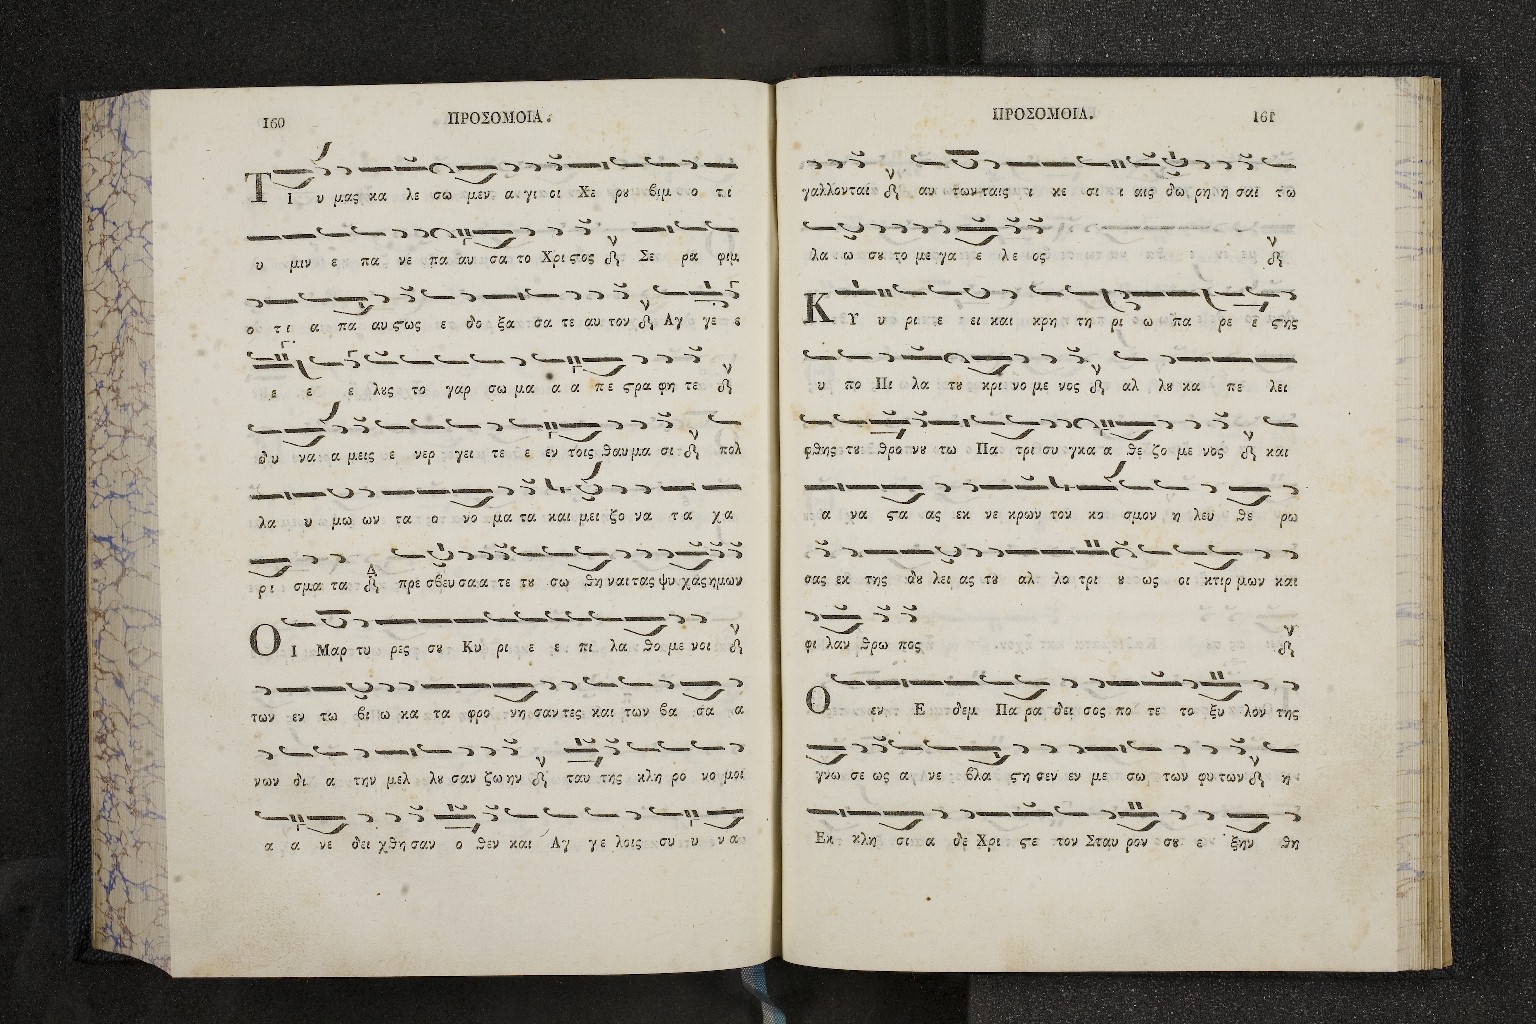 160 ΠΡΟΣΟΜΟΙΑ.
ΤΙ υ μας κα λε σω μεν α γι οι Χε ρȣ βιμ ο τι
υ μιν ε πα νε πα αυ σα το Χρι ϛος Σε ρα φιμ
ο τι α πα αυ ϛως ε δο ξα σα τε αυ τον Αγ γε ε
ε ε ε λȣς το γαρ σω μα α α πε ϛρα φη τε
δυ να α μεις ε νερ γει τε ε εν τοις θαυ μα σι πολ
λα υ μω ων τα ο νο μα τα και μει ζο να τα χα
ρι σμα τα Δ πρε σβευ σα α τε τȣ σω θη ναι τας ψυ χας η μων
ΟΙ Μαρ τυ ρες σȣ Κυ ρι ε ε πι λα θο με νοι
των εν τω βι ω κα τα φρο νη σαν τες και των βα σα α
νων δι α την μελ λȣ σαν ζω ην ταυ της κλη ρο νο μοι
α α νε δει χθη σαν ο θεν και Αγ γε λοις συ υ να
ΠΡΟΣΟΜΟΙΑ. 161
γαλλονται αυ των ταις ι κε σι ι αις δω ρη η σαι τω
λα ω σȣ το με γα ε λε ος
ΚΥ υ ρι ε ει και κρη τη ρι ω πα ρε ε ϛης
υ πο Πι λα τȣ κρι νο με νος αλ λȣ κα πε λει
φθης τȣ θρο νȣ τω Πα τρι συ γκα α θε ζο με νος και
α να ϛα ας εκ νε κρων τον κο σμον η λευ θε ρω
σας εκ της δȣ λει ας τȣ αλ λο τρι ȣ ως οι κτιρ μων και
φι λαν θρω πος
Ο εν Ε δεμ Πα ρα δει σος πο τε το ξυ λον της
γνω σε ως α νε βλα ϛη σεν εν με σω των φυ των η
Εκ κλη σι α δε Χρι ϛε τον Σταυ ρον σȣ ε ξην θη